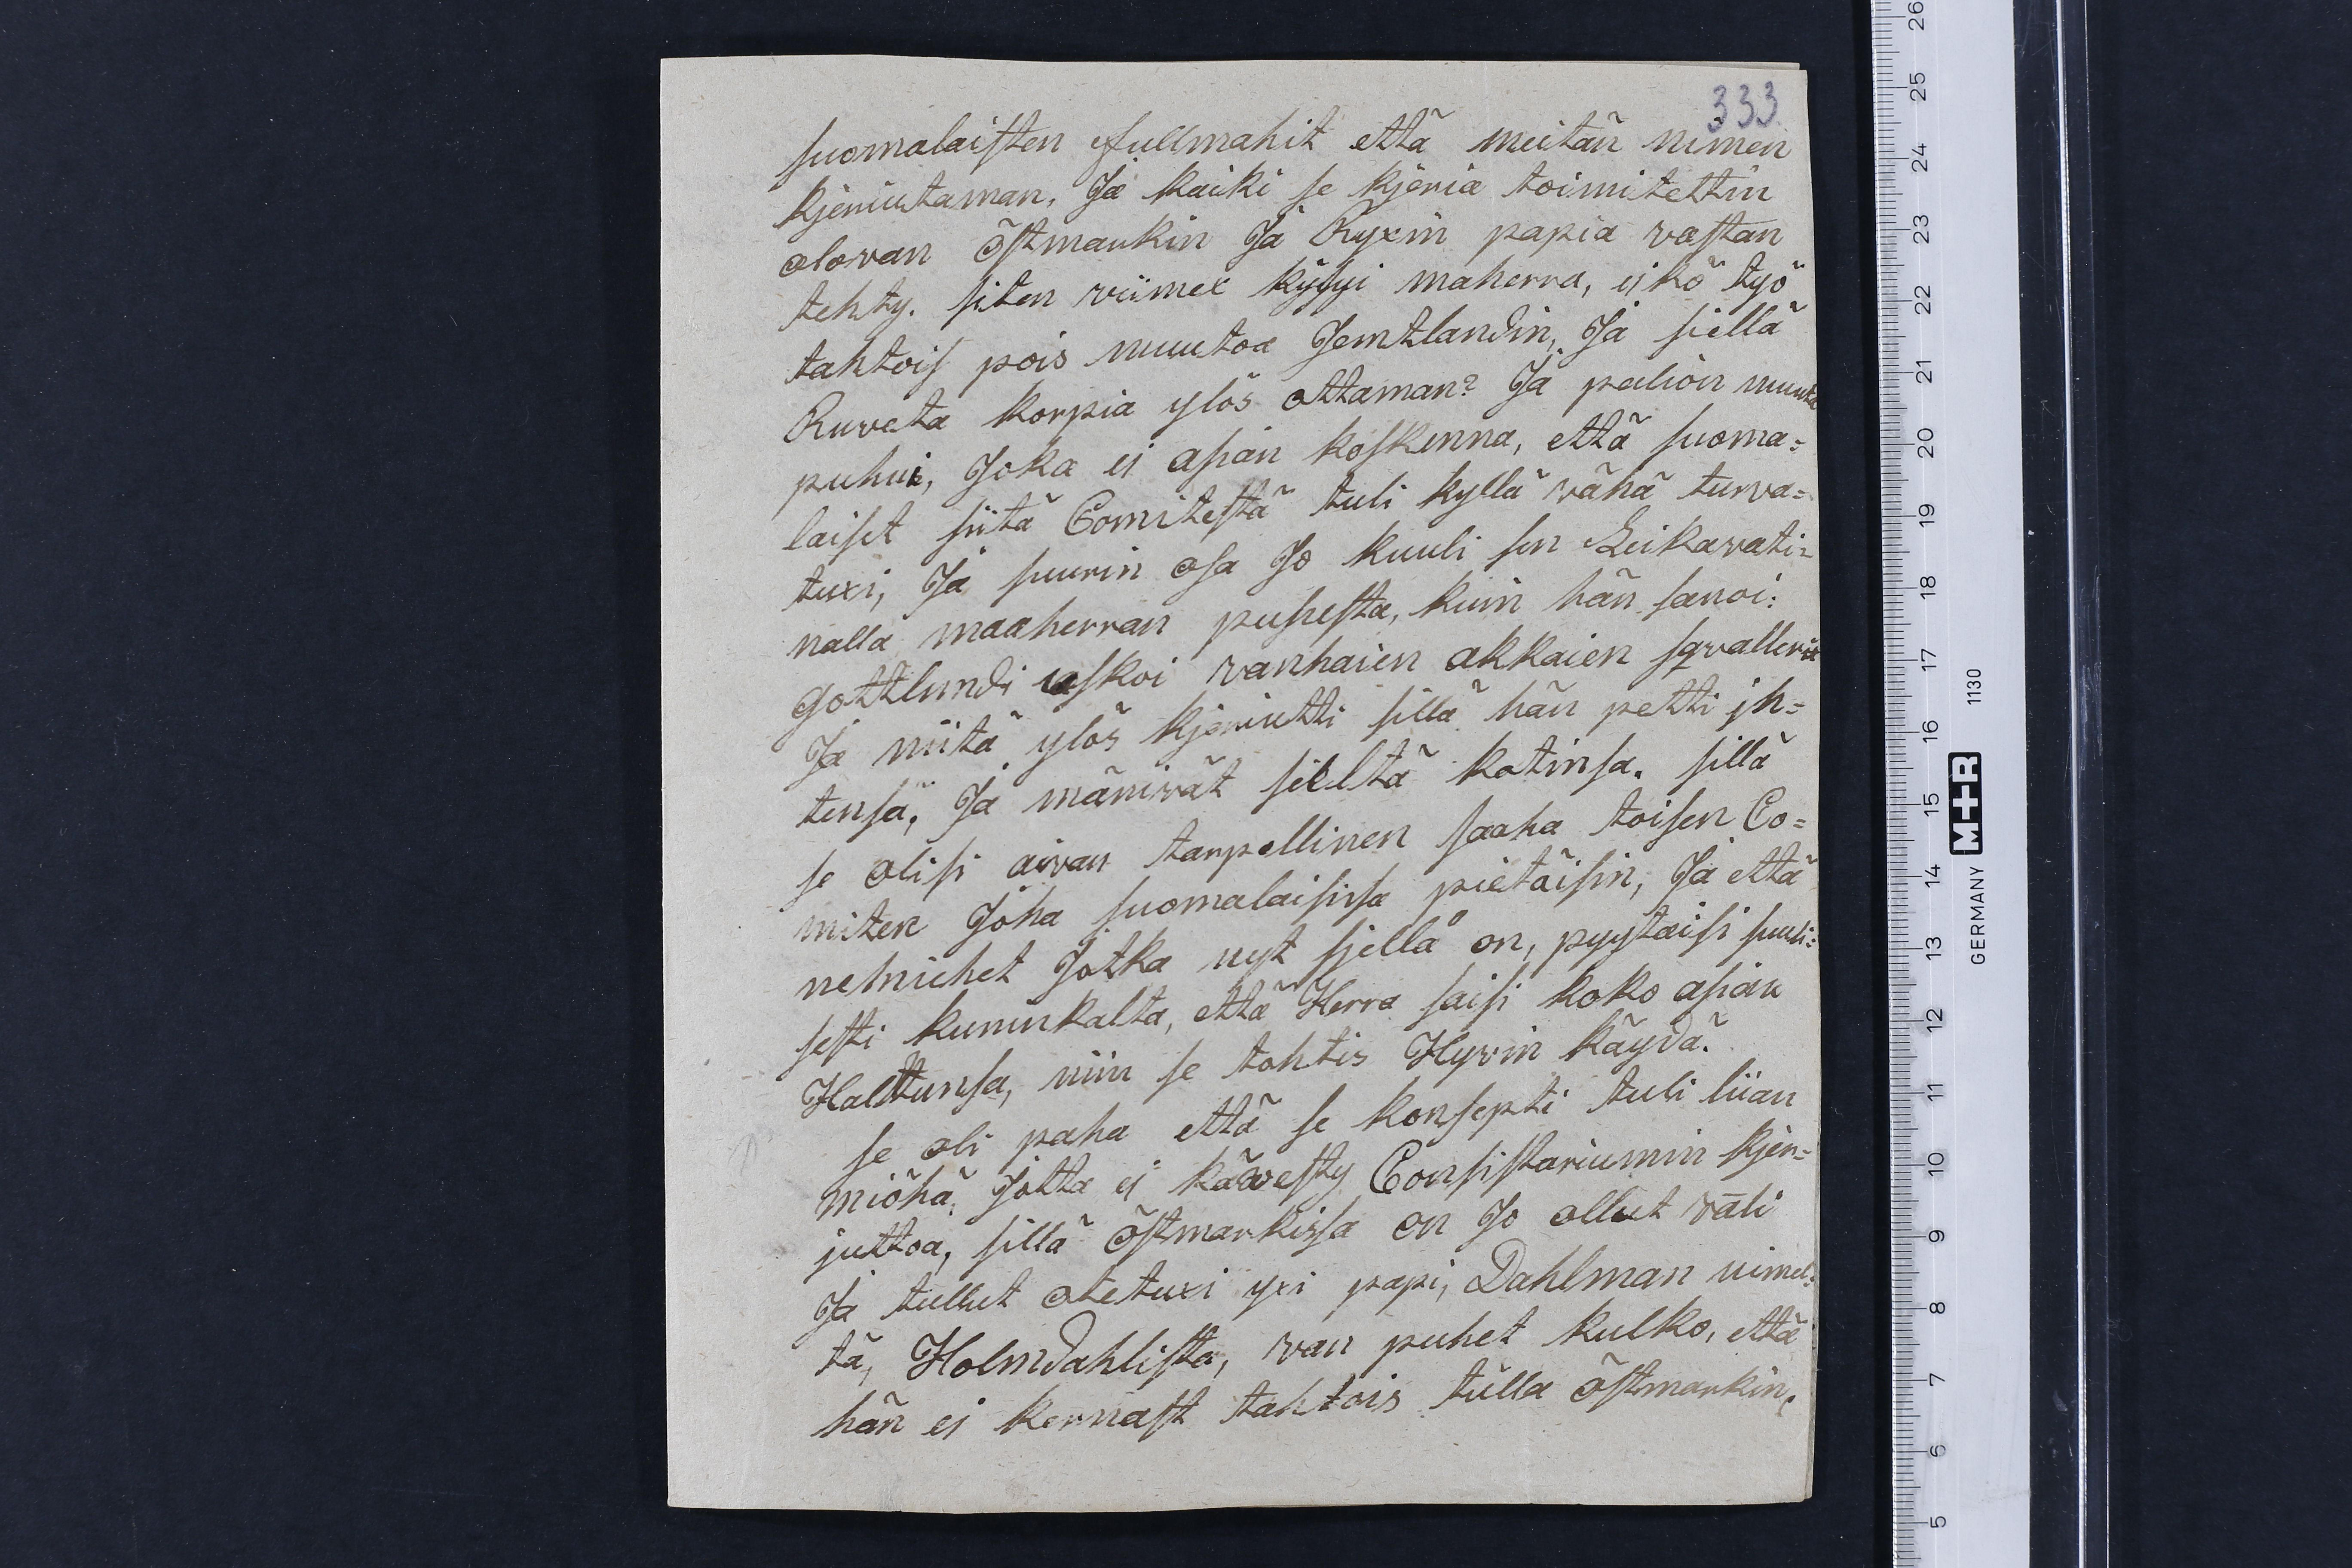 333
suomalaisten fullmahit että meitän nimen
kjeriutaman, Ja kaiki se kjeria toimitettin
olovan östmarkin Ja Ryxin papia vastan
tehty. siten viimex kysyi maherra, eikö työ
tahtois pois muutoa Jemtlandin, Ja siellä
Ruveta korpia ylös ottaman? Ja paliön muuta
puhui, Joka ei asian koskenna, että suoma=
laiset siitä Comitestä tuli kyllä vähä turva=
tuxi, Ja suurin osa Jo kuuli sen Leikavati=
nalla maaherran puhesta, kuin hän sanoi:
gottlundi uskoi vanhaien akkaien sqvallerit
Ja niitä ylös kjeriutti sillä hän petti jh=
tensä, Ja mänivät sieltä kotinsa. sillä
se olisi aivan tarpellinen saaha toisen Co=
miten Joha suomalaisissa pietäisin, Ja että
ne miehet Jotka nyt sjellä on, pyytäisi suuli=
sesti kuninkalta, että Herra saisi koko asian
Halttunsa, niin se tohtis Hyvin käydä.
se oli paha että se konsepti tuli liian
miöhä, Jotta ei kävvesty Consistariumin kjer=
juttoa, sillä östmarkissa on Jo ollut väli
Ja tullut otetuxi yxi papi, Dahlman nimel=
tä, Holmdahlista, van puhet kulko, että
hän ej kernast tahtois tulla östmarkin.
M+R
GERMANY
1130
26
25
24
23
22
21
20
19
18
17
16
15
14
13
12
11
10
9
8
7
6
5